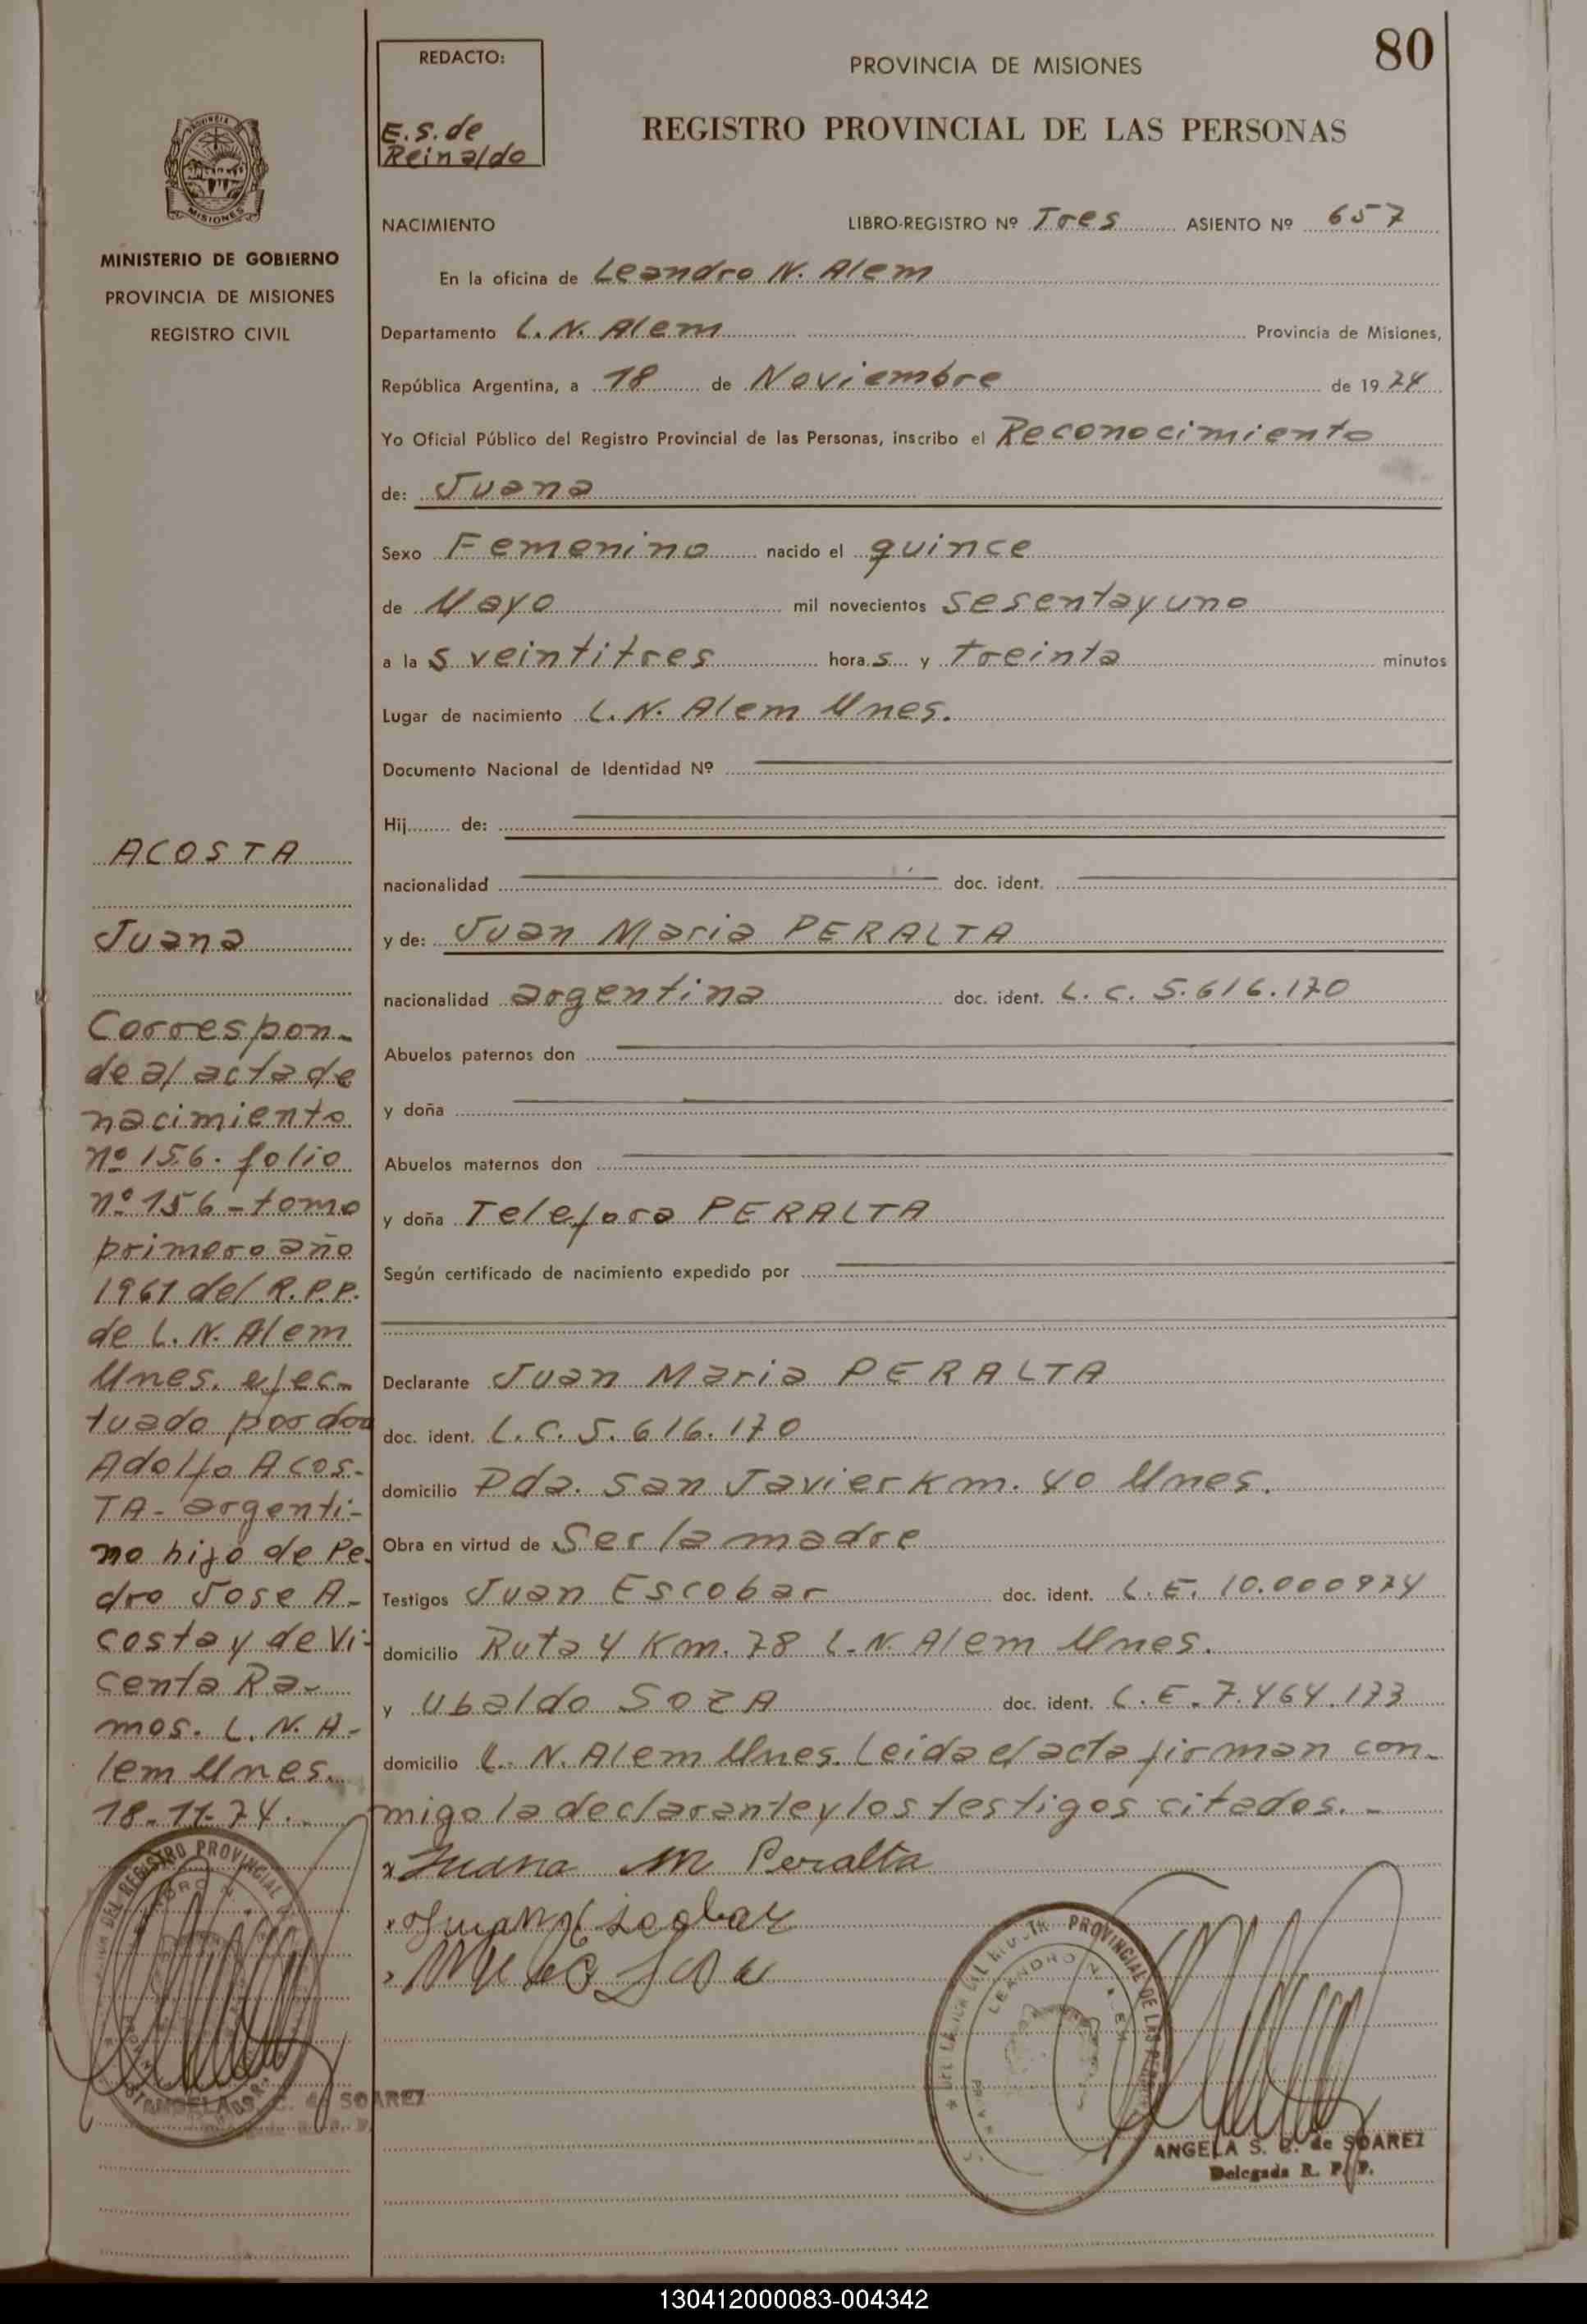 80
REDACTO:
E.S. de
Reinaldo
PROVINCIA DE MISIONES
REGISTRO PROVINCIAL DE LAS PERSONAS
PROVINCIA
MISIONES
MINISTERIO DE GOBIERNO
PROVINCIA DE MISIONES
REGISTRO CIVIL
NACIMIENTO LIBRO-REGISTRO Nº Tres ASIENTO Nº 657
En la oficina de Leandro N. Alem
Departamento L.N. Alem Provincia de Misiones,
República Argentina, a 18 de Noviembre de 1974
Yo Oficial Público del Registro Provincial de las Personas, inscribo el Reconocimiento
de: Juana
Sexo Femenino nacido el quince
de Mayo mil novecientos sesentayuno
a las veintitres horas y treinta minutos
Lugar de nacimiento L.N. Alem Mnes.
Documento Nacional de Identidad Nº
Hij de:
nacionalidad doc. ident.
y de: Juan Maria PERALTA
nacionalidad argentina doc. ident. L.C. 5.616.170
Abuelos paternos don
y doña
Abuelos maternos don
y doña Telefora PERALTA
Según certificado de nacimiento expedido por
Declarante Juan Maria PERALTA
doc. ident. L.C. 5.616.170
domicilio Pda. San Javier Km. 40 Mnes.
Obra en virtud de Ser la madre
Testigos Juan Escobar doc. ident. L.E. 10.000974
domicilio Ruta 4 Km. 78 L.N. Alem Mnes.
y Ubaldo SOZA doc. ident. L.E. 7.464.173
domicilio L.N. Alem Mnes. Leida el acta firman con-
migo la declarante y los testigos citados.-
Juana M Peralta
Juan Escobar
ACOSTA
Juana
Correspon-
de al acta de
nacimiento
nº 156. folio
nº 156 - tomo
primero año
1961 del R.P.P.
de L.N. Alem
Mnes. efec-
tuado por don
Adolfo Acos-
TA - argenti-
no hijo de Pe-
dro Jose A-
costa y de Vi-
centa Ra-
mos. L.N. A-
lem Mnes.
18-11-74.-
DEL REGISTRO PROVINCIAL
C. de SOAREZ
PROVINCIAL DE LAS
LEANDRO N. ALEM
ANGELA S. C. de SOAREZ
Delegada R. P. P.
130412000083-004342